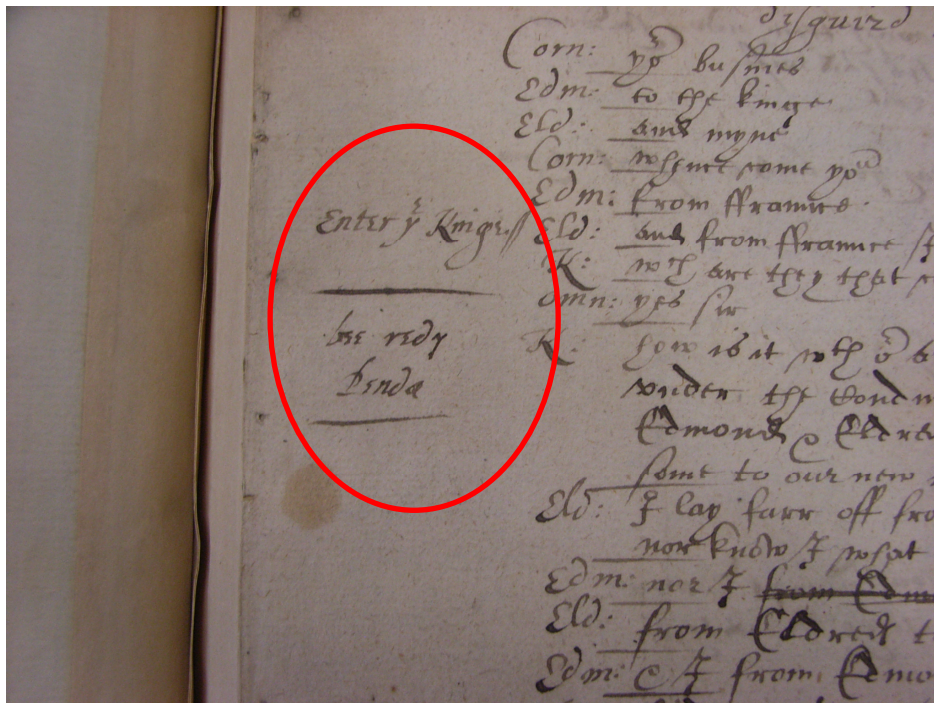 disguird
Corn: yor busines
Edm: to the kinge
Eld: and myne
Corn: whence come you
Edm: from ffrance
Enter ye Kinge//
Eld: and from ffrance
K: wch are they that
omn: yes sir
bee redy
K: how is it wth
Benda
vnder the
Edmond & Eldred
some to our new
Eld: I lay farr off
nor know I what
Edm: nor I from
Eld: from Eldred
Edm: & I from Edmo